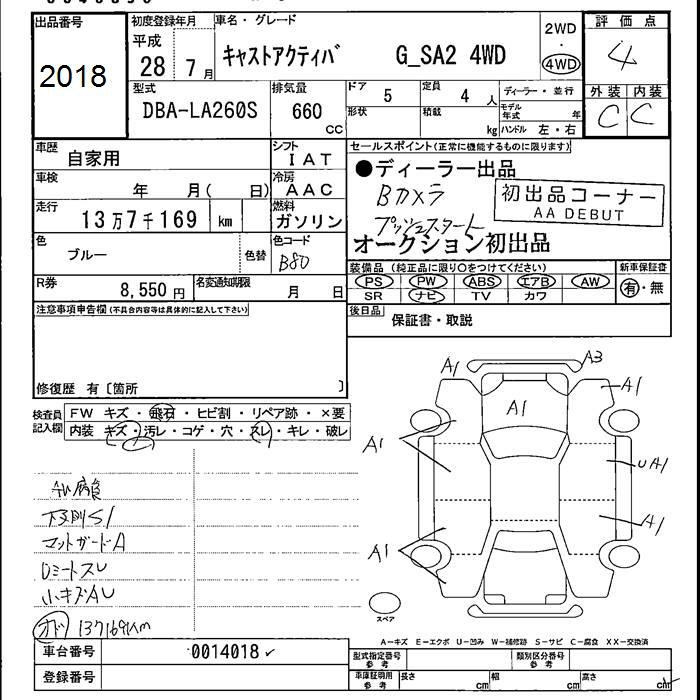 出品番号 初度登録年月 車名・グレード 評価点
2018 平成 28 7月 キャストアクティバ G_SA2 4WD 2WD・4WD 4
型式 排気量 ドア 定員 ディーラー・並行 外装 内装
DBA-LA260S 660 CC 5 4 人 C C
形状 積載 kg モデル年式 年 ハンドル 左・右
車歴 自家用 シフト IAT
セールスポイント(正常に機能するものに限ります)
車検 年 月( 日) 冷房 AAC
●ディーラー出品
Bカメラ
初出品コーナー
AA DEBUT
走行 13万7千169 km 燃料 ガソリン
プッシュスタート
オークション初出品
色 ブルー 色替 色コード B80
装備品(純正品に限り○をつけてください) 新車保証書
PS PW ABS エアB AW 有・無
SR ナビ TV カワ
R券 8,550円 名変通知期限 月 日
後日品 保証書・取説
注意事項申告欄(不具合内容等は具体的に記入して下さい)
修復歴 有〔箇所 〕
検査員記入欄 FW キズ・飛石・ヒビ割・リペア跡・×要
内装 キズ・汚レ・コゲ・穴・スレ・キレ・破レ
A1 A3
A1 A1
A1 UA1
A1 A1
AW腐食
下廻りS1
マットガードA
Dミラースレ
小キズAU
オド 137169km
スペア
A-キズ E-エクボ U-凹み W-補修跡 S-サビ C-腐食 XX-交換済
車台番号 0014018
登録番号
型式指定番号 参考 類別区分番号 参考
車庫証明用 参考 長さ cm 幅 cm 高さ cm